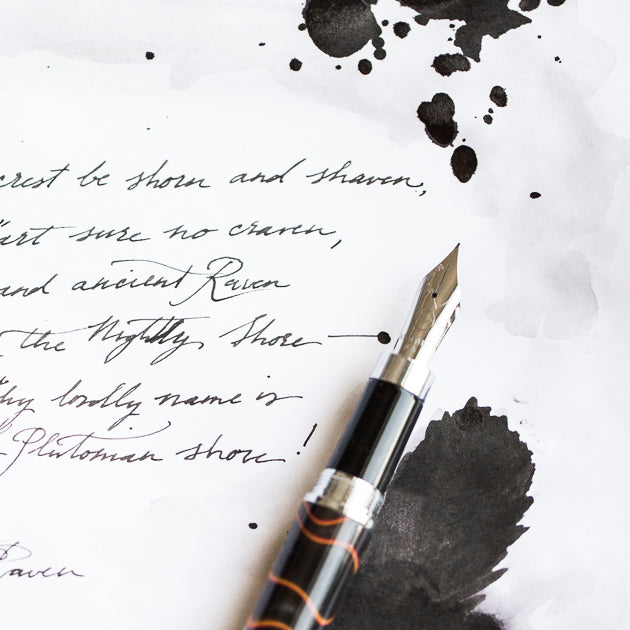 crest be shorn and shaven,
"art sure no craven,
and ancient Raven
the Nightly Shore —
thy lordly name is
Plutonian shore!
Raven